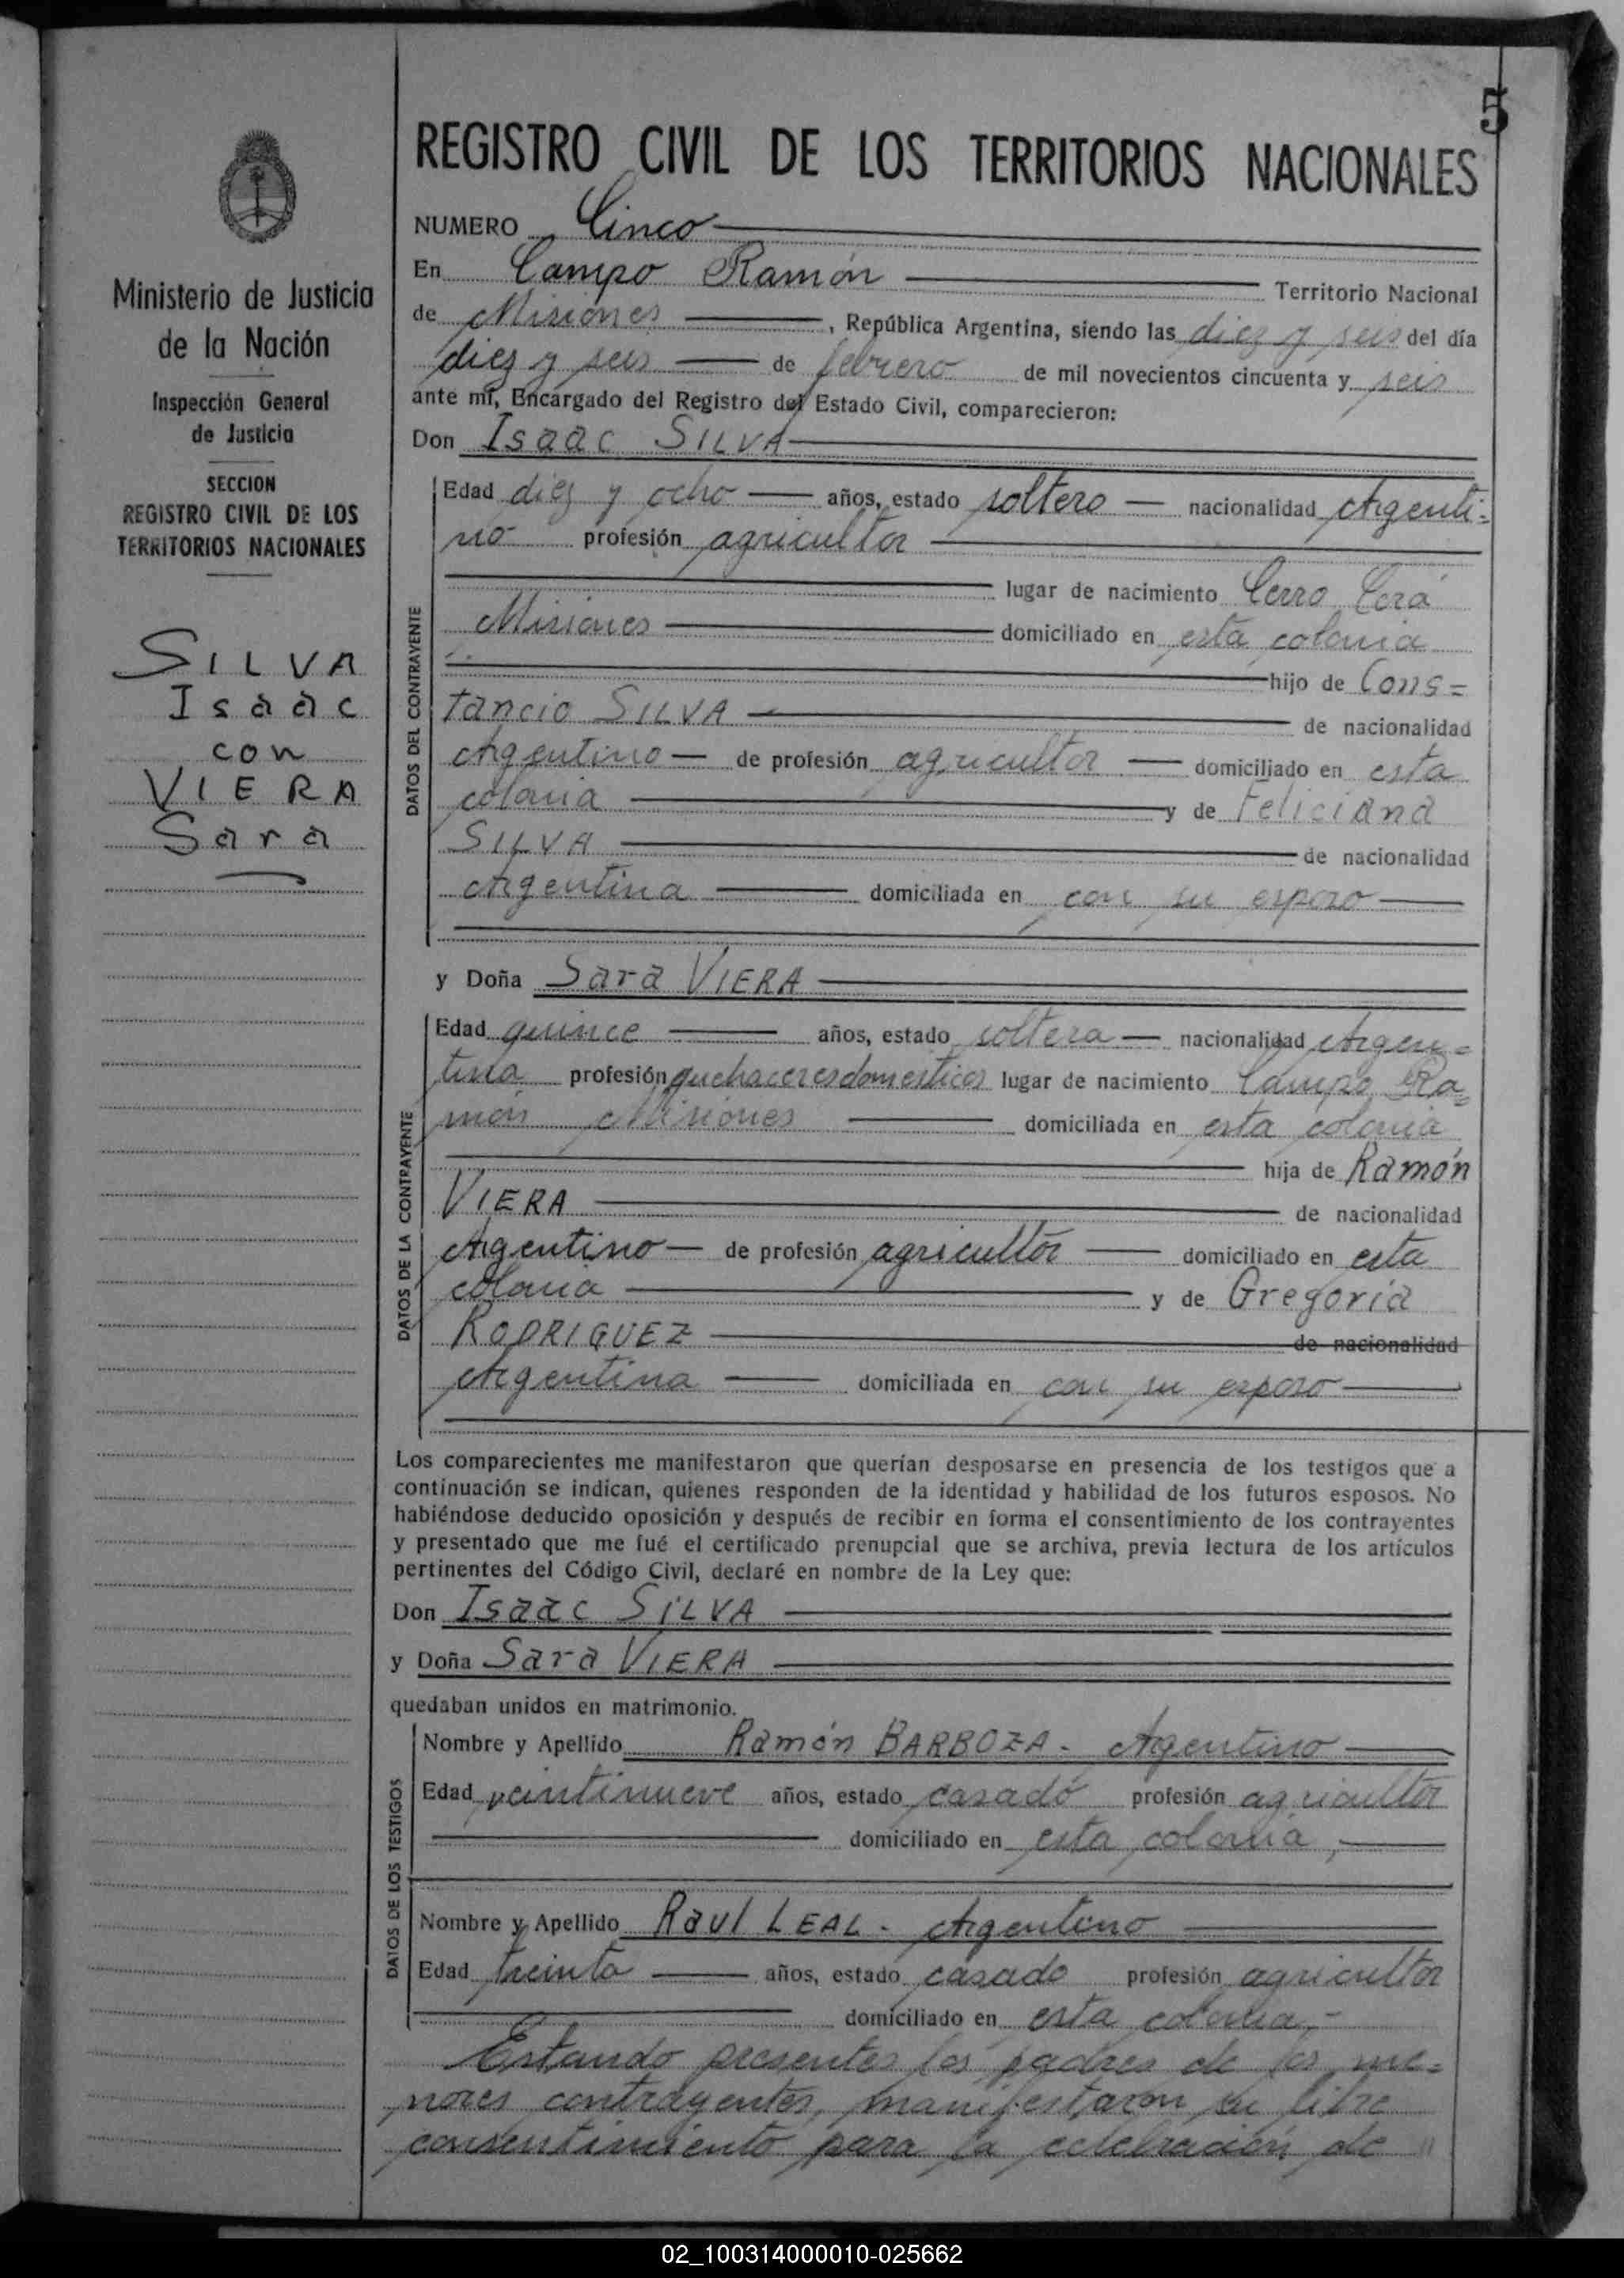 5
REGISTRO CIVIL DE LOS TERRITORIOS NACIONALES
Ministerio de Justicia
de la Nación
Inspección General
de Justicia
SECCION
REGISTRO CIVIL DE LOS
TERRITORIOS NACIONALES
SILVA
Isaac
con
VIERA
Sara
NUMERO Cinco
En Campo Ramón Territorio Nacional
de Misiones, República Argentina, siendo las diez y seis del día
diez y seis de febrero de mil novecientos cincuenta y seis
ante mí, Encargado del Registro del Estado Civil, comparecieron:
Don Isaac SILVA
DATOS DEL CONTRAYENTE
Edad diez y ocho años, estado soltero nacionalidad Argenti=
no profesión agricultor
lugar de nacimiento Cerro Corá
Misiones domiciliado en esta colonia
hijo de Cons=
tancio SILVA de nacionalidad
Argentino de profesión agricultor domiciliado en esta
colonia y de Feliciana
SILVA de nacionalidad
Argentina domiciliada en con su esposo
y Doña Sara VIERA
DATOS DE LA CONTRAYENTE
Edad quince años, estado soltera nacionalidad Argen=
tina profesión quehaceres domesticos lugar de nacimiento Campo Ra=
món Misiones domiciliada en esta colonia
hija de Ramón
VIERA de nacionalidad
Argentino de profesión agricultor domiciliado en esta
colonia y de Gregoria
RODRIGUEZ de nacionalidad
Argentina domiciliada en con su esposo
Los comparecientes me manifestaron que querían desposarse en presencia de los testigos que a
continuación se indican, quienes responden de la identidad y habilidad de los futuros esposos. No
habiéndose deducido oposición y después de recibir en forma el consentimiento de los contrayentes
y presentado que me fué el certificado prenupcial que se archiva, previa lectura de los artículos
pertinentes del Código Civil, declaré en nombre de la Ley que:
Don Isaac SILVA
y Doña Sara VIERA
quedaban unidos en matrimonio.
DATOS DE LOS TESTIGOS
Nombre y Apellido Ramón BARBOZA - Argentino
Edad veintinueve años, estado casado profesión agricultor
domiciliado en esta colonia,
Nombre y Apellido Raul LEAL - Argentino
Edad treinta años, estado casado profesión agricultor
domiciliado en esta colonia,-
Estando presentes los padres de los me=
nores contrayentes, manifestaron su libre
consentimiento para la celebración de "
02_100314000010-025662